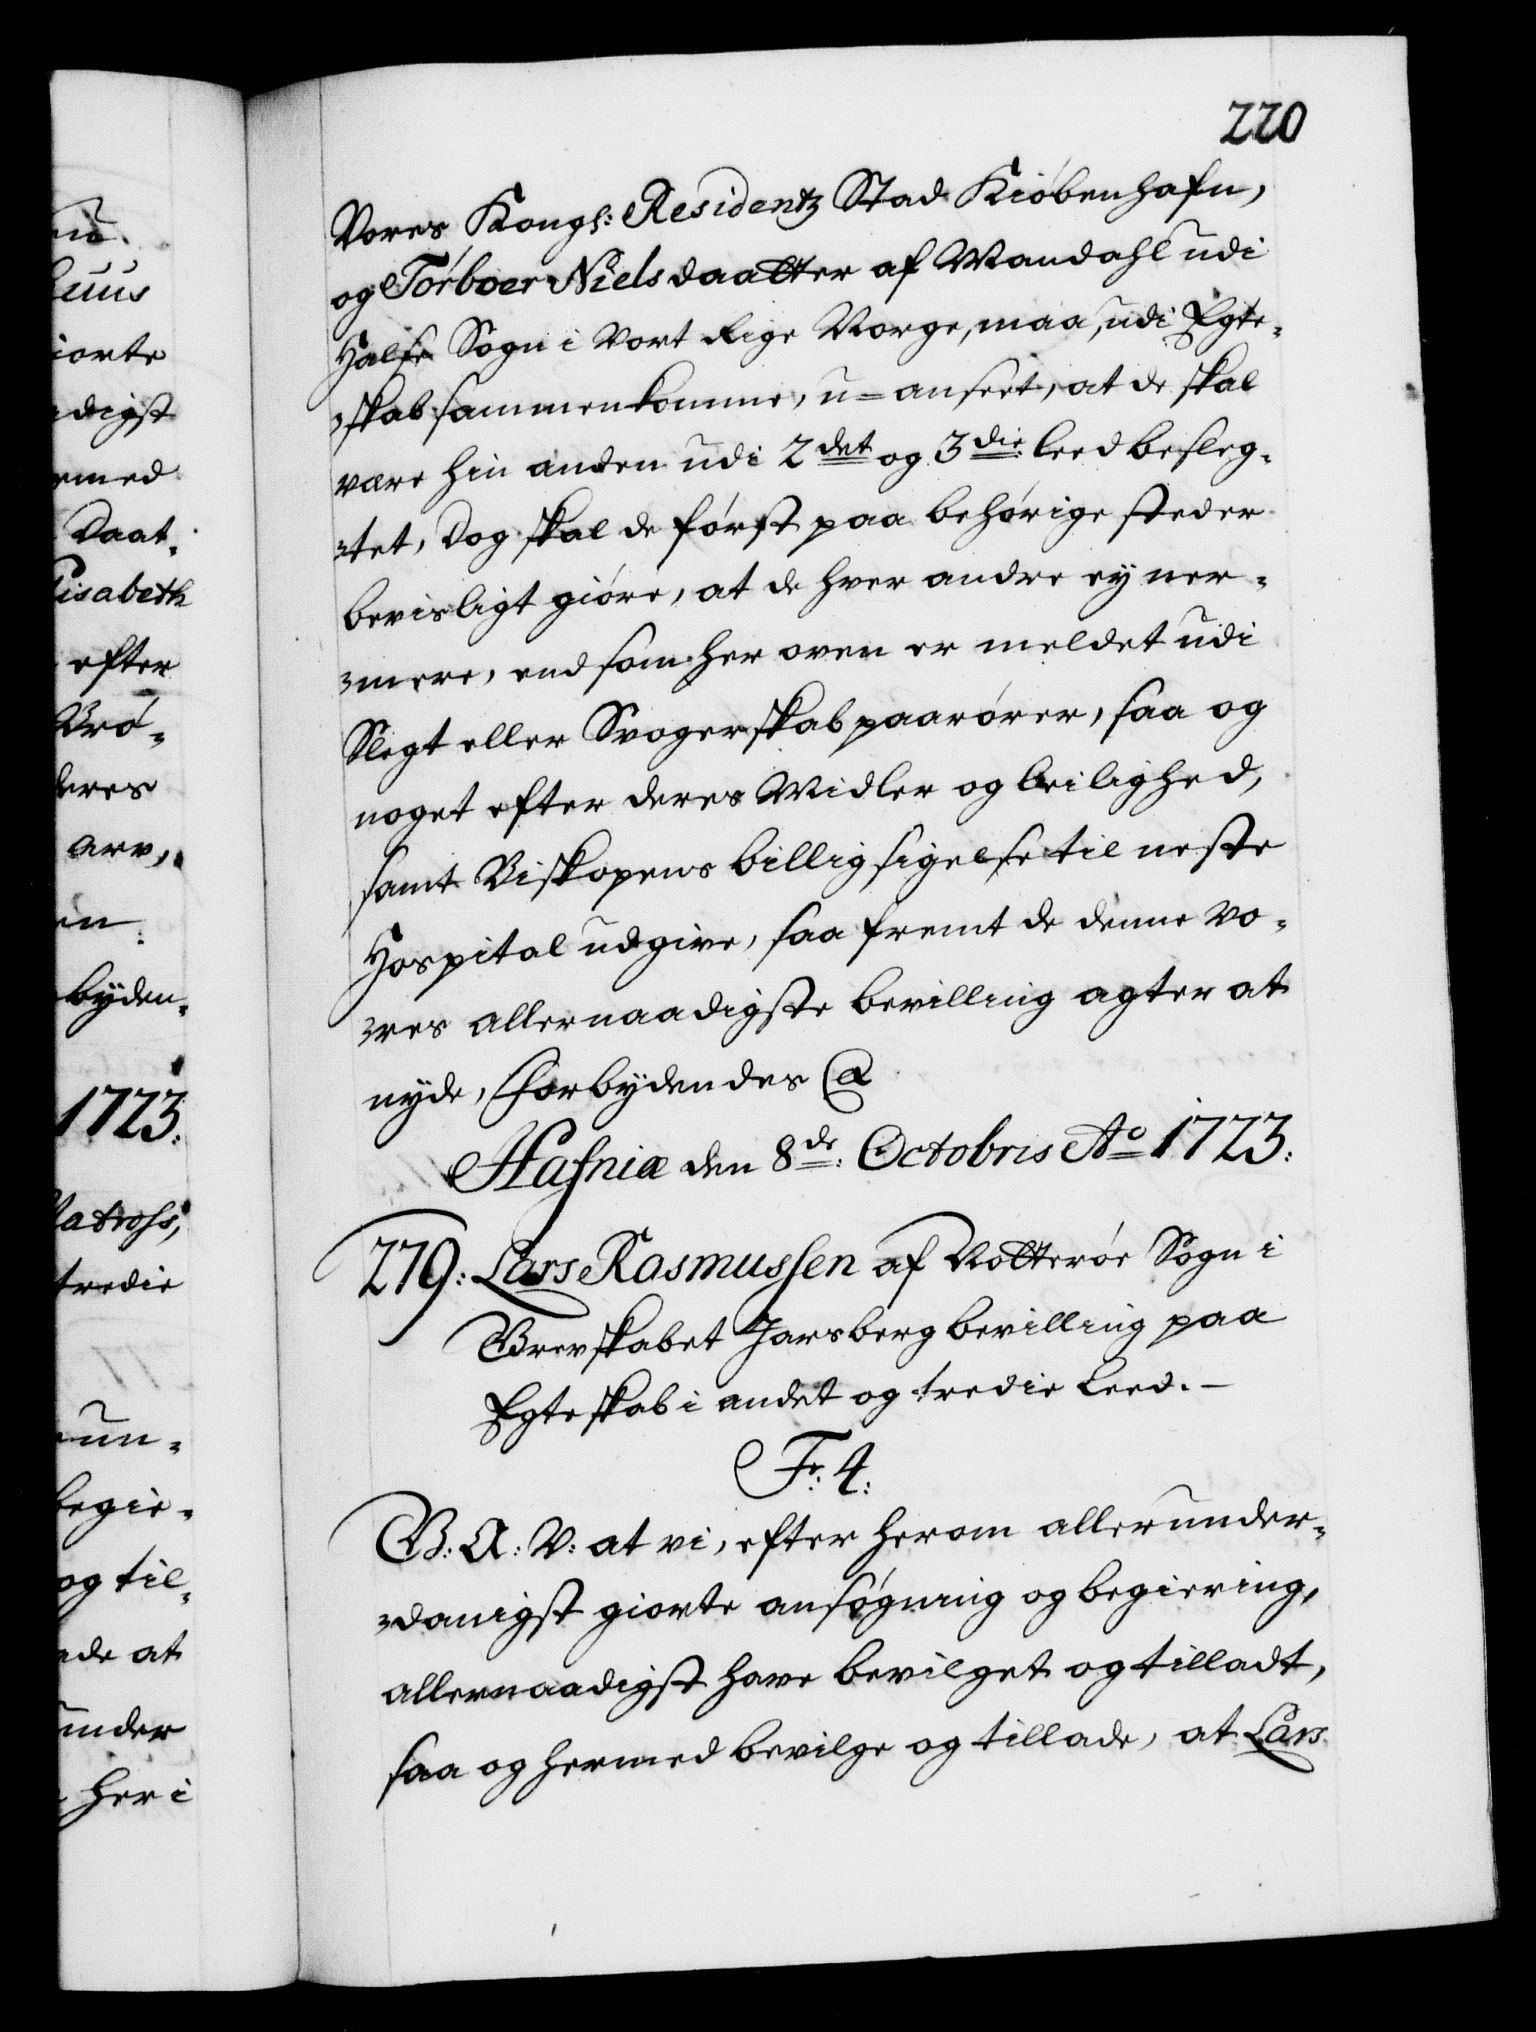 220
Vores Kongl: Residentz Stad Kiöbenhafn,
og Törboer Niels daatter af Mandahl udi
Halse Sogn i Vort Rige Norge, maa, udi Egte-
skab sammenkomme, u-anseet, at de skal
være hin anden udi 2det og 3die leed besleg-
tet, dog skal de först paa behörige steder
bevisligt giöre, at de hver andre ey ner-
mere, end som her oven er meldet udi
Slegt eller Svogerskab paarörer, saa og
noget efter deres Midler og leilighed,
samt Biskopens billigsigelse til neste
Hospital udgive, saa fremt de denne Vo-
res allernaadigste bevilling agter at
nyde, Forbydendes &
Hafniæ den 8de: Octobris Ao 1723:
279: Lars Rasmussen af Notteröe Sogn i
Grevskabet Jarsberg bevilling paa
Egteskab i andet og tredie leed.
Fr: 4:
G: A: V: at vi, efter herom allerunder-
danigst giorte ansögning og begiering,
allernaadigst have bevilget og tilladt,
saa og hermed bevilge og tillade, at Lars
huus
iorte
adigst
ermed
Daat-
lisabeth
efter
Brö-
deres
arv,
en
byden-
1723:
Matross,
tredie
un-
begie-
og til-
ade at
under
her i